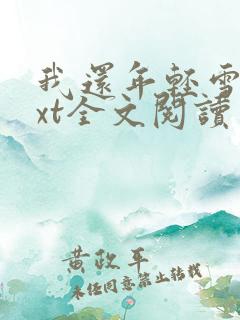 我還年輕雪
xt全文閱讀
黃政平
未經同意禁止轉載